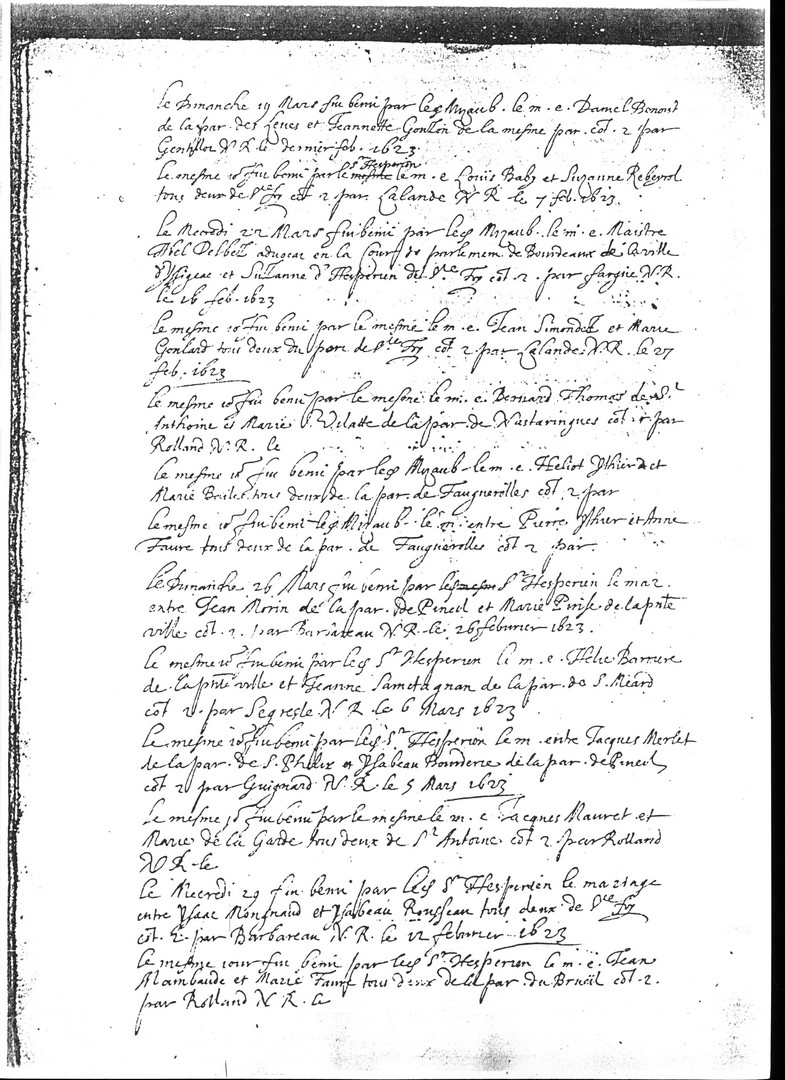 le Dimanche 19 Mars fut beni par led Myaub. le m. e. Daniel Benoist
de la par. des Leues et Jeannette Gontin de la mesme par. cot. 2 par
Gentillot N. R. le dernier feb. 1623
le mesme io. fut beni par le mesme Sr Hesperien le m. e Louis Baby et Suzanne Rebeyrol
tous deux de Ste Foy cot 2 par Lalande N R le 7 feb. 1623.
le Mecredi 22 Mars fut beni par led Myaub. le m. e. Maistre
Abel Delbet aduocat en la Cour de parlement de Bourdeaux de la ville
d'Ysigeac et Suzanne d'Hesperien de Ste Foy cot. 2. par fargue N. R.
le 16 feb. 1623
le mesme io. fut beni par le mesme le m. e. Jean Simondet et Marie
Gonlard tous deux du parc de Ste Foy cot 2 par Lalande N. R. le 27
feb. 1623
le mesme io. fut beni par le mesme le m. e. Bernard Thomas de St
Anthoine et Marie Vilatte de la par. de Nastaringues cot. par
Rolland N. R. le
le mesme io. fut beni par led Myaub. le m. e. Heliot Ythier et
Marie Boile tous deux de la par. de Fauguerolles cot. 2 par
le mesme io. fut beni led Miaub. le m. entre Pierre Ythier et Anne
Faure tous deux de la par. de Fauguerolles cot 2 par.
le Dimanche 26 Mars fut beni par led Sr Hesperien le mar.
entre Jean Morin de la par. de Pineuil et Marie de la pnte
ville cot. 2. par Barbareau N. R. le 26 februrier 1623.
le mesme io. fut beni par led Sr Hesperien le m. e. Helie Barriere
de la pnte ville et Jeanne Sametagnan de la par. de S. Meard
cot 2 par Segresle N. R. le 6 Mars 1623
le mesme io. fut beni par led Sr Hesperien le m. entre Jacques Merlet
de la par. de S. Phelix et Ysabeau Bourderie de la par. de Pineul
cot 2 par Guignard N. R. le 5 Mars 1623
le mesme io. fut beni par le mesme le m. e Jacques Mauret et
Marie de la Garde tous deux de St Antoine cot 2. par Rolland
N R. le
le Mecredi 29 fut beni par led Sr Hesperien le mariage
entre Ysaac Mongnaud et Ysabeau Rousseau tous deux de Ste Foy
cot. 2. par Barbareau N. R. le 12 februrier 1623
le mesme iour fut beni par led Sr Hesperien le m. e. Jean
Alambaude et Marie Faure tous deux de la par. du Brueil cot. 2.
par Rolland N R. le